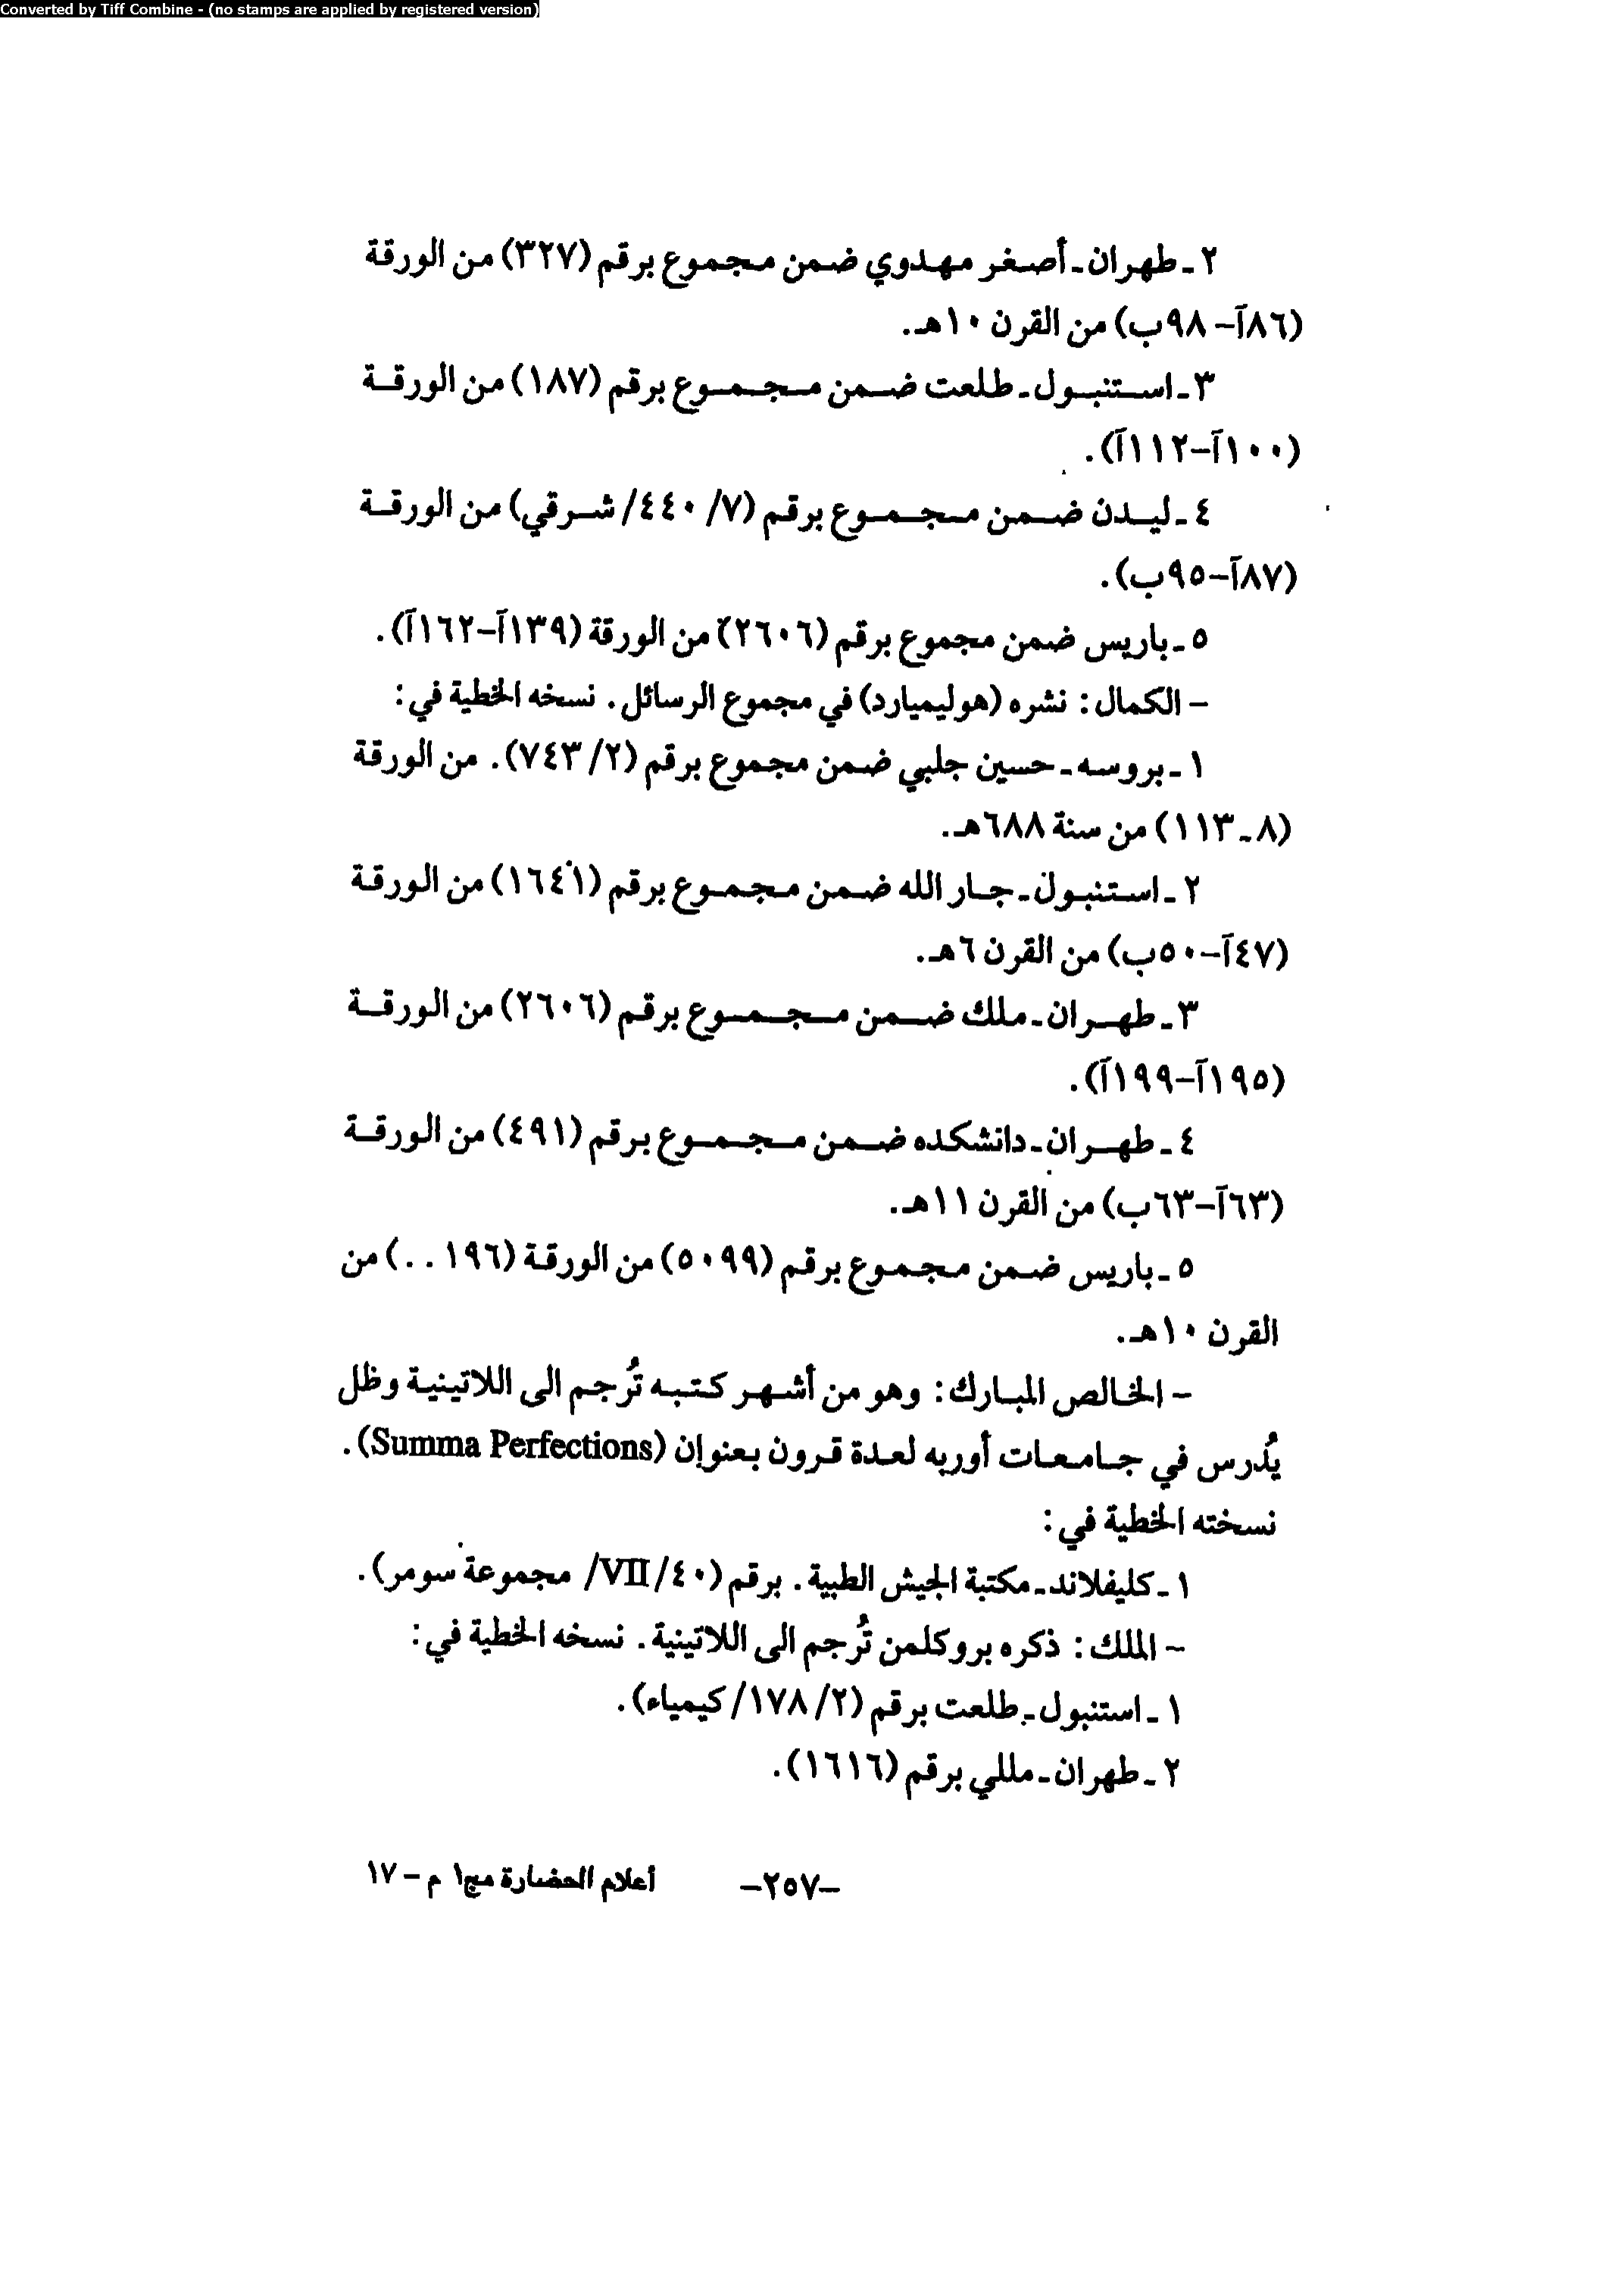 Converted by Tiff Combine - (no stamps are applied by registered version)
٢ ـ طهران ـ أصغر مهدوي ضمن مجموع برقم (٣٢٧) من الورقة
(٨٦آ– ٩٨ب) من القرن ١٠هـ.
٣ ـ استنبول ـ طلعت ضمن مجموع برقم (١٨٧) من الورقة
(١٠٠آ–١١٢آ).
٤ ـ ليدن ضمن مجموع برقم (٧/ ٤٤٠/ شرقي) من الورقة
(٨٧آ–٩٥ب).
٥ ـ باريس ضمن مجموع برقم (٢٦٠٦) من الورقة (١٣٩آ–١٦٢آ).
– الكمال: نشره (هوليميارد) في مجموع الرسائل. نسخه الخطية في:
١ ـ بروسه ـ حسين جلبي ضمن مجموع برقم (٢/ ٧٤٣). من الورقة
(٨ ـ ١١٣) من سنة ٦٨٨هـ.
٢ ـ استنبول ـ جار الله ضمن مجموع برقم (١٦٤١) من الورقة
(٤٧آ–٥٠ب) من القرن ٦هـ.
٣ ـ طهران ـ ملك ضمن مجموع برقم (٢٦٠٦) من الورقة
(١٩٥آ–١٩٩آ).
٤ ـ طهران ـ دانشكده ضمن مجموع برقم (٤٩١) من الورقة
(٦٣آ–٦٣ب) من القرن ١١هـ.
٥ ـ باريس ضمن مجموع برقم (٥٠٩٩) من الورقة (١٩٦ . .) من
القرن ١٠هـ.
– الخالص المبارك: وهو من أشهر كتبه تُرجم الى اللاتينية وظل
يُدرس في جامعات أوربه لعدة قرون بعنوان (Summa Perfections).
نسخته الخطية في:
١ ـ كليفلاند ـ مكتبة الجيش الطبية. برقم (٤٠/VII/ مجموعة سومر).
– الملك: ذكره بروكلمن تُرجم الى اللاتينية. نسخه الخطية في:
١ ـ استنبول ـ طلعت برقم (٢/ ١٧٨/ كيمياء).
٢ ـ طهران ـ مللي برقم (١٦١٦).
–٢٥٧– أعلام الحضارة مج١ م – ١٧